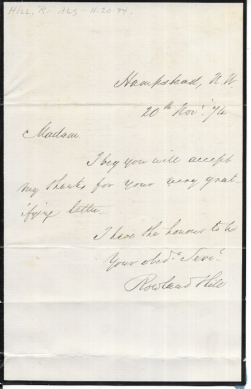 Hill, R. - ALS - 11.20.74
Hampstead, N.W
20th Novr. 74
Madam.
I beg you will accept
my thanks for your very grat
ifying letter.
I have the honour to be
Your obedt. Servt.
Rowland Hill